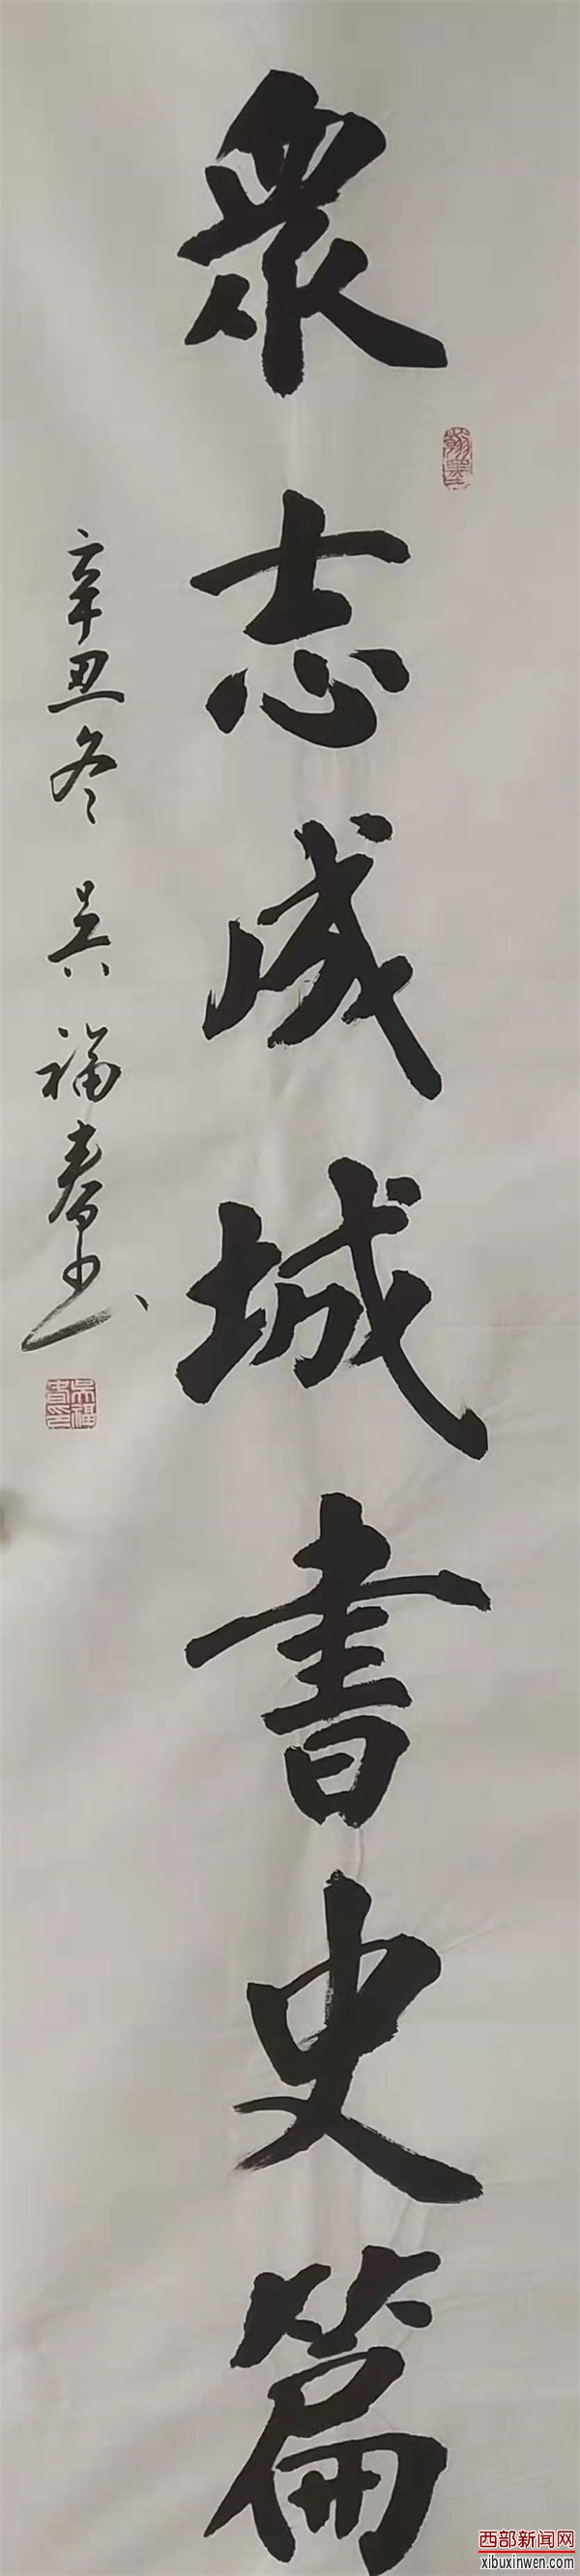 眾志成城書史篇
辛丑冬 吴福春书
翰墨
吴福春印
西部新闻网
xibuxinwen.com